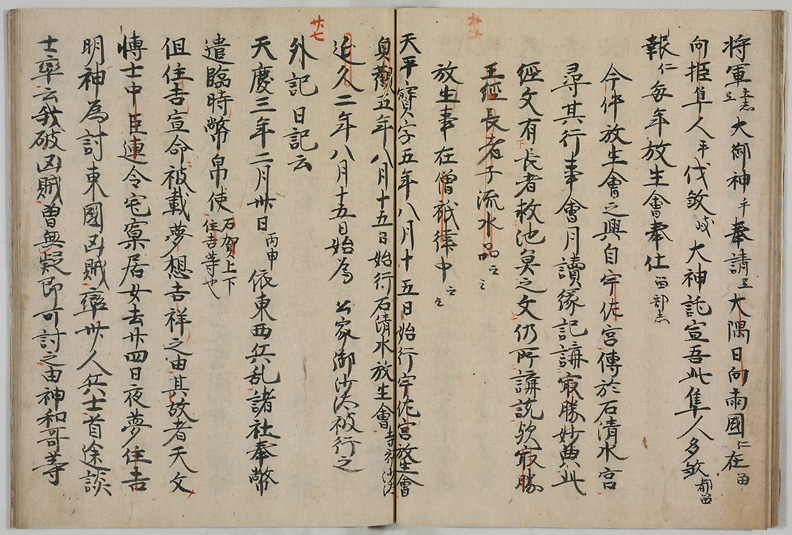 将軍 大御神乎奉請天大隅日向両国仁在
向拒隼人乎伐殺 大神託宣吾此隼人多殺
報仁毎年放生會奉仕
今件放生會之興自宇佐宮傳於石清水宮
尋其行事會月讀縁記講最勝妙典此
經文有長者救池魚之文仍所講説欤最勝
王經長者子流水品云云
放生事在僧祇律中云云
天平寶字五年八月十五日始行宇佐宮放生會
貞観五年八月十五日始行石清水放生會
延久二年八月十五日始為 公家御沙汰被行之
廿七
外記日記云
天慶三年二月廿日丙申依東西兵乱諸社奉幣
遣臨時幣帛使石賀上下住吉等也
但住吉宣命被載夢想吉祥之由其故者天文
博士中臣連令宅禀居女去廿四日夜夢住吉
明神為討東國凶賊率卅人兵士首途談
士率云我破凶賊曽無疑即可討之由神和哥等